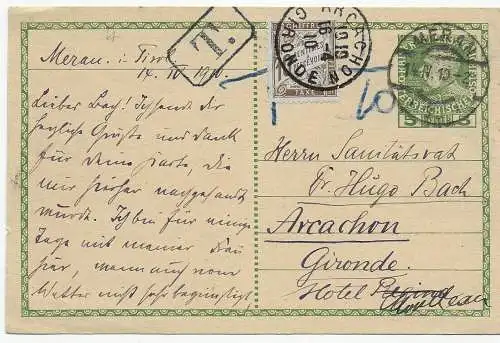 Meran i. Tirol
14. IV 1910.
Lieber Bach! Ich sende dir
herzliche Grüße und dank
für deine Karte, die
mir hieher nachgesandt
wurde. Ich bin für einige
Tage mit meiner Frau
hier, wenn auch vom
Wetter nicht sehr begünstigt,
T.
CHIFFRE
TAXE
ARCACHON
GIRONDE
16-4
10
MERAN
14.IV.10
5
Herrn Sanitätsrat
Dr. Hugo Bach
Arcachon
Gironde.
Hotel